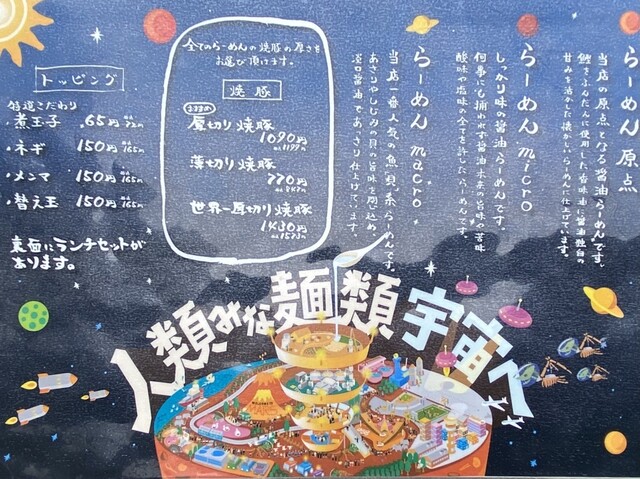 らーめん 原点
当店の原点となる醤油らーめんです。
鰹をふんだんに使用した香味油に醤油独自の
甘みを活かした懐かしい らーめんに仕立てています。
らーめん micro
しっかり味の醤油らーめんです。
何事にも捕われず醤油本来の旨味や苦味
酸味や塩味の全てを許したらーめんです。
らーめん macro
当店一番人気の魚、貝、系らーめんです。
あさりやしじみの貝の旨味を閉じ込め、
淡口醤油であっさり仕上げています。
全てのらーめんの焼豚の厚さを
お選び頂けます。
焼豚
おすすめ
厚切り焼豚
1090円
税込1199円
薄切り焼豚
770円
世界一厚切り焼豚
1430円
税込1573円
トッピング
特選こだわり
・煮玉子 65円
・ネギ 150円 税込165円
・メンマ 150円 税込165円
・替え玉 150円 税込165円
裏面にランチセットが
あります。
人類みな麺類 宇宙へ